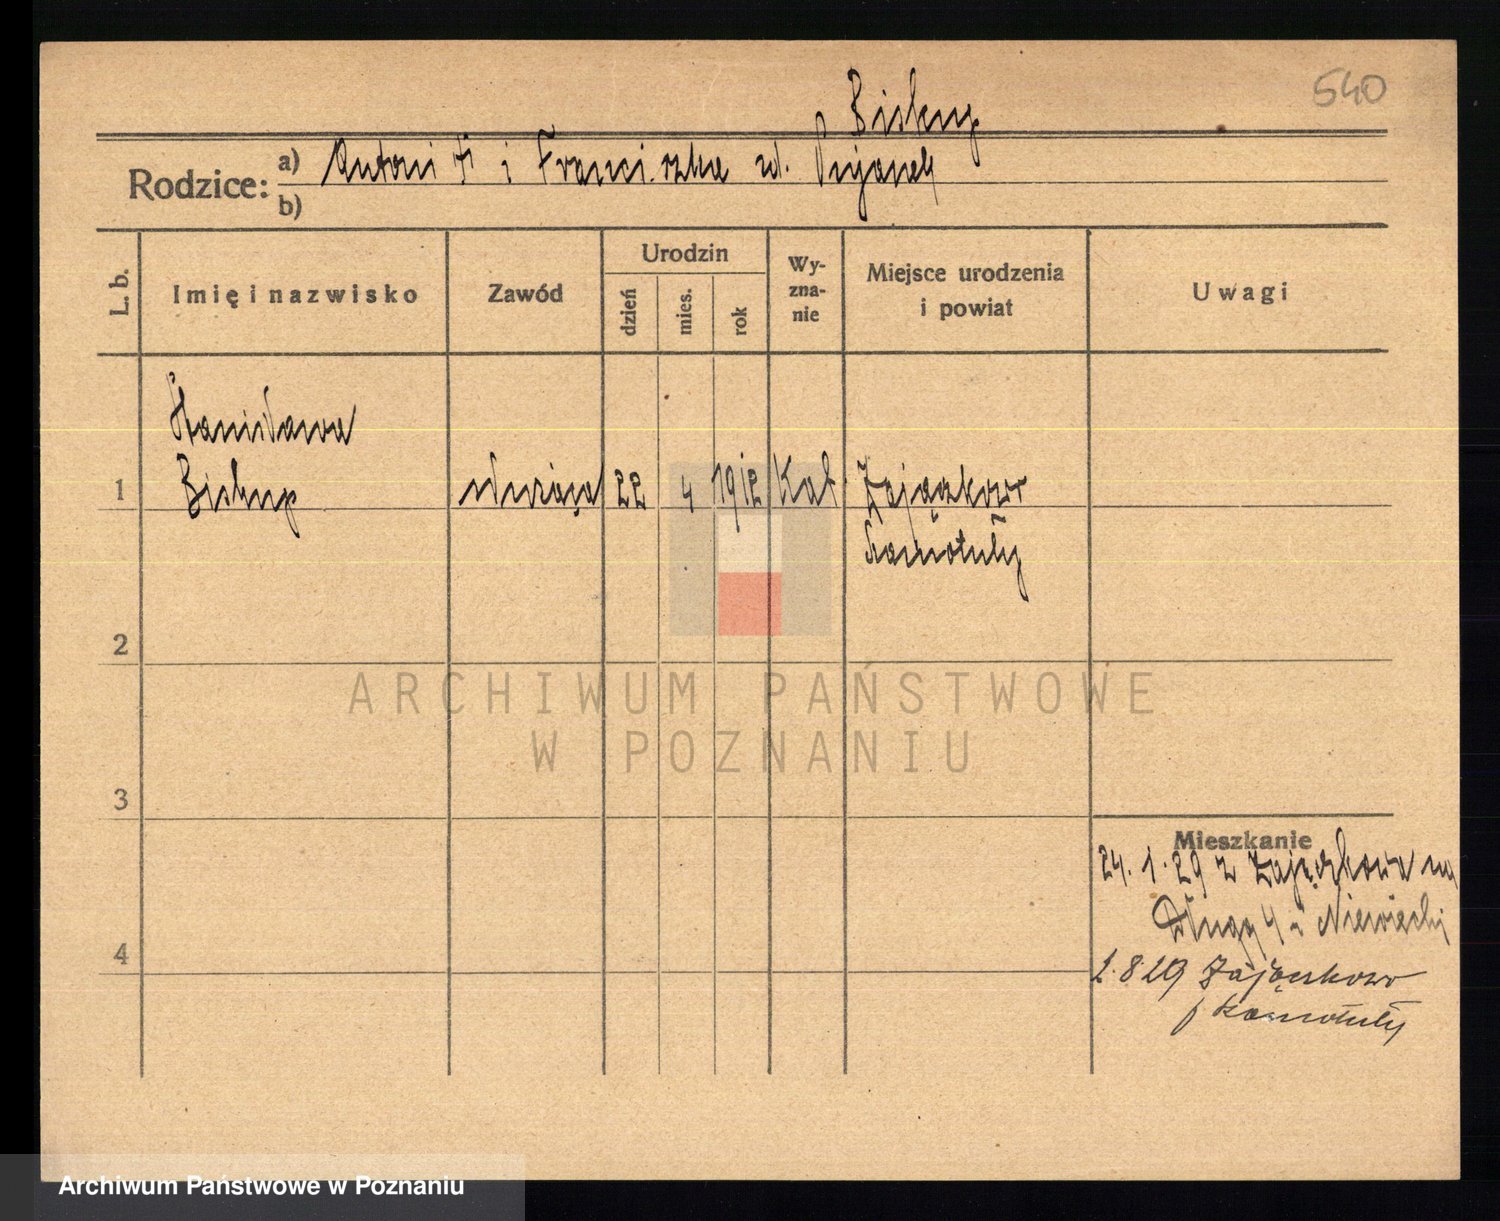 540
Biskup
Rodzice: a) Antoni i Franciszka ur.
b)
L. b.
Imię i nazwisko
Zawód
Urodzin
dzień
mies.
rok
Wy-
zna-
nie
Miejsce urodzenia
i powiat
Uwagi
Stanisława
1 Biskup służąca 22 4 1912 Kat. Zajączkowo
Szamotuły
2
3
4
Mieszkanie
24. 1. 29 z Zajączkowa na
Długą 4
2.8.29 Zajączkowo
Szamotuły
ARCHIWUM PAŃSTWOWE
W POZNANIU
Archiwum Państwowe w Poznaniu